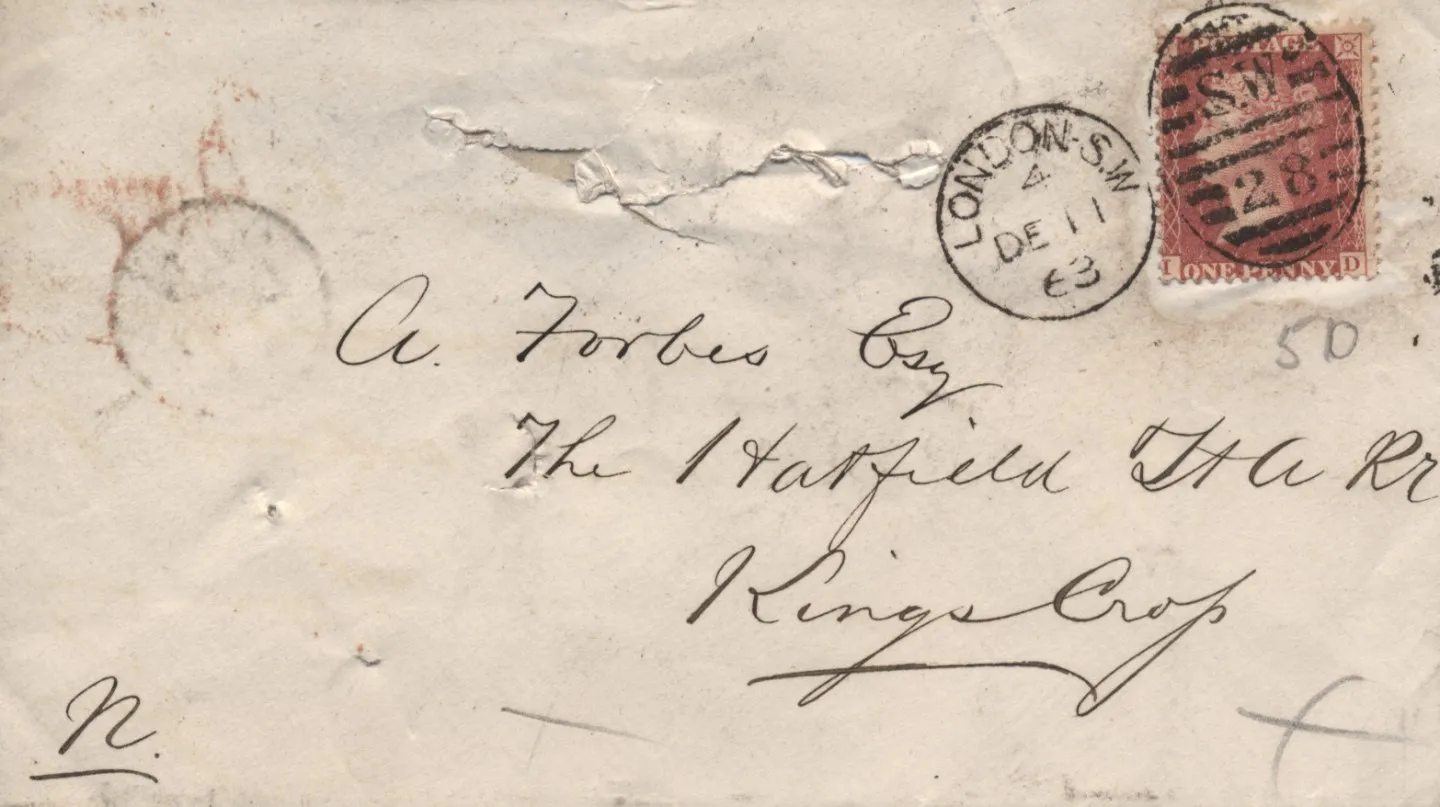 POSTAGE
S.W
28
I ONE PENNY. D
LONDON·S.W
4
DE 11
63
50
A. Forbes Esq
The Hatfield & St A Rr
Kings Cross
N.